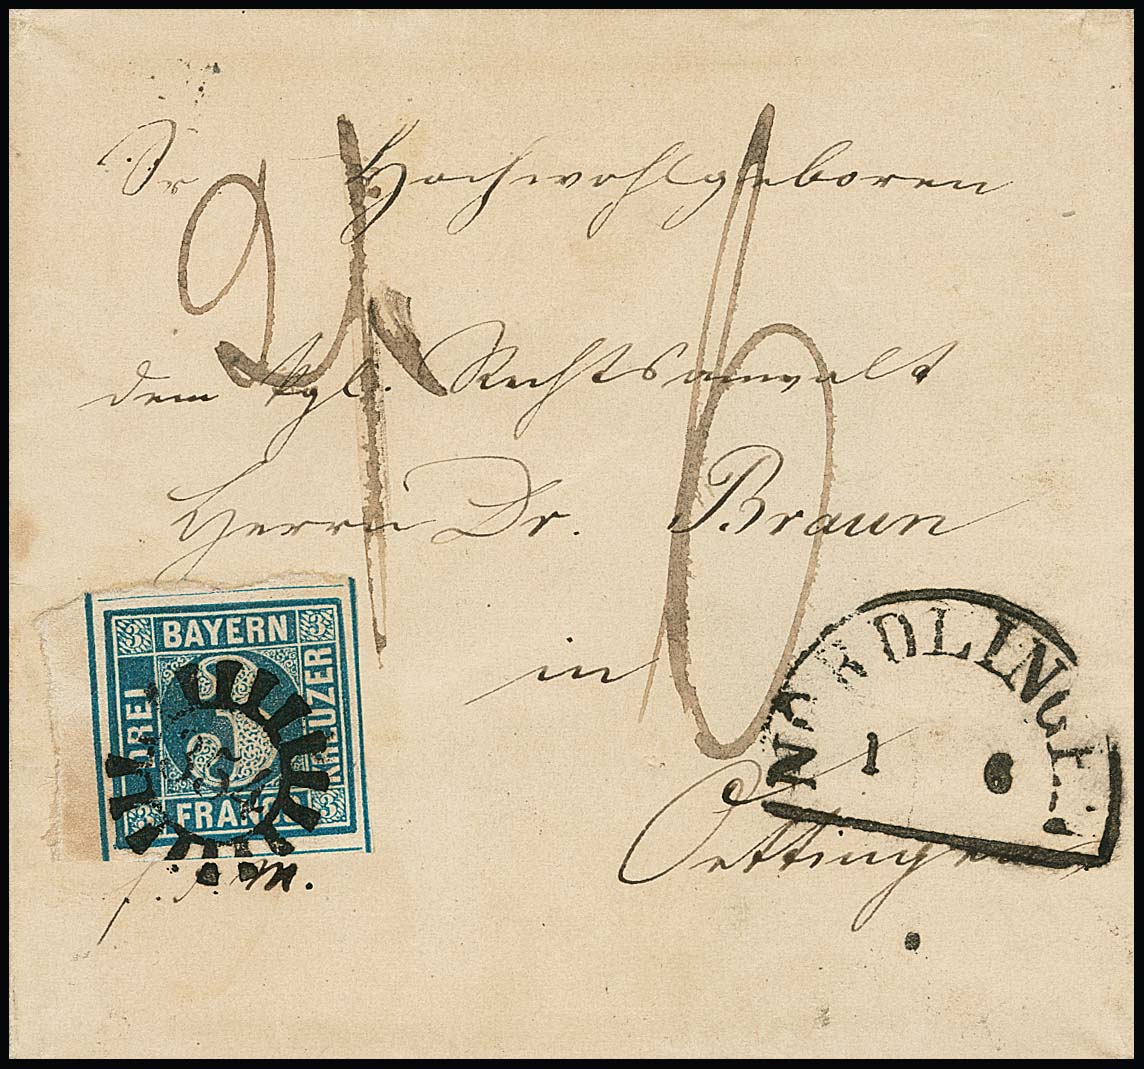 Sr Hochwohlgeboren
dem kgl. Rechtsanwalt
Herrn Dr. Braun
in
Oettingen
6
3 BAYERN 3
DREI
3
KREUZER
3 FRANCO 3
NÖRDLINGEN
1 6